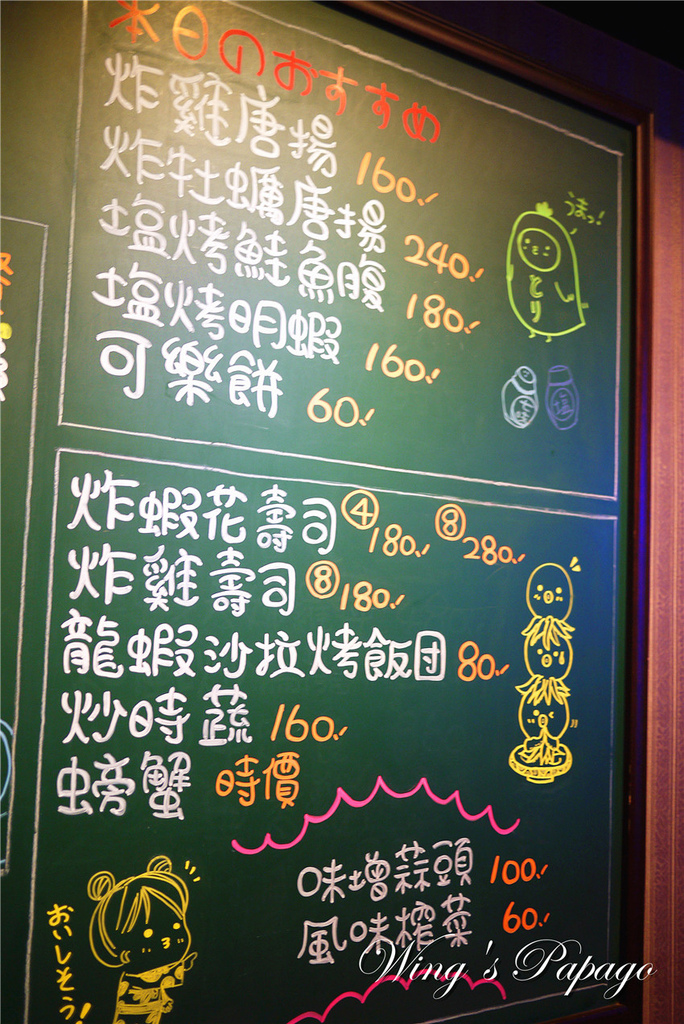 本日のおすすめ
炸雞唐揚 160.
炸牡蠣唐揚 240.
塩烤鮭魚腹 180.
塩烤明蝦 160.
可樂餅 60.
うまっ!
とり
塩
炸蝦花壽司 ④180. ⑧280.
炸雞壽司 ⑧180.
龍蝦沙拉烤飯団 80.
炒時蔬 160.
螃蟹 時價
味增蒜頭 100.
風味榨菜 60.
おいしそう!
Wing's Papago